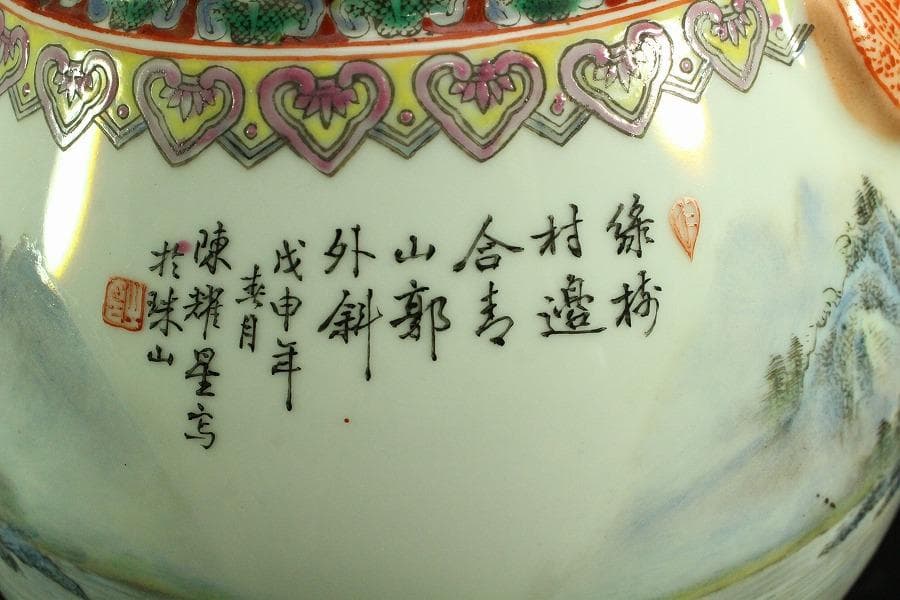 綠樹
村邊
合青
山郭
外斜
戊申年
春月
陳耀星寫
於珠山